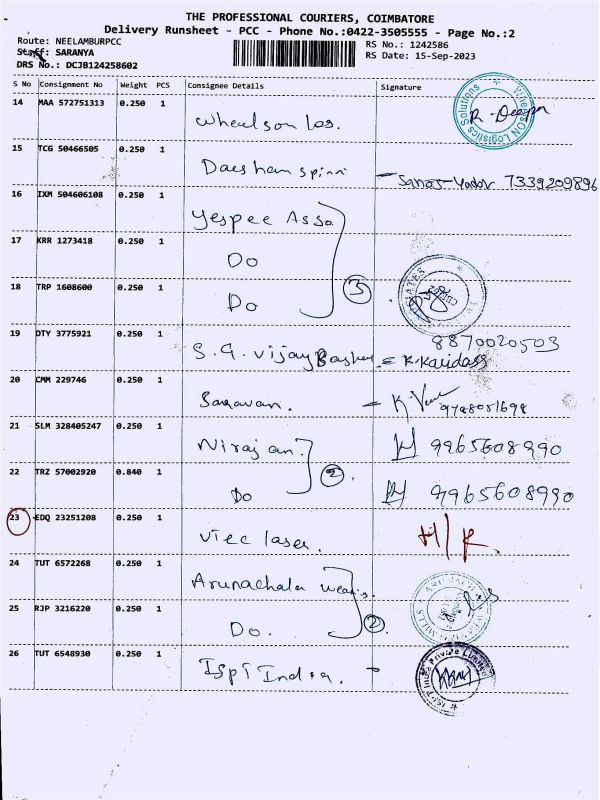 THE PROFESSIONAL COURIERS, COIMBATORE
Delivery Runsheet - PCC - Phone No.:0422-3505555 - Page No.:2
Route: NEELAMBURPCC
RS No.: 1242586
Staff: SARANYA
RS Date: 15-Sep-2023
DRS No.: DCJB124258602
S No Consignment No Weight PCS Consignee Details Signature
14 MAA 572751313 0.250 1 Wheelson Los. R. Deepa
WHEELSON Logistics Solutions
15 TCG 50466505 0.250 1 Daeshan spinn 7339209896
16 IXM 504606108 0.250 1 Yespee Asso
17 KRR 1273418 0.250 1 Do
18 TRP 1608600 0.250 1 Do 3
19 DTY 3775921 0.250 1 S.G. Vijay Baskar = K. Karidass 8870020503
20 CMM 229746 0.250 1 Saravan. = K.
21 SLM 328405247 0.250 1 Nirajan. 9965608990
22 TRZ 57002920 0.840 1 Do 2 9965608990
23 EDQ 23251208 0.250 1 Vtec laser. H/K.
24 TUT 6572268 0.250 1 Arunachala
25 RJP 3216220 0.250 1 Do. 2
26 TUT 6548930 0.250 1 IspT India.
India Private Limited